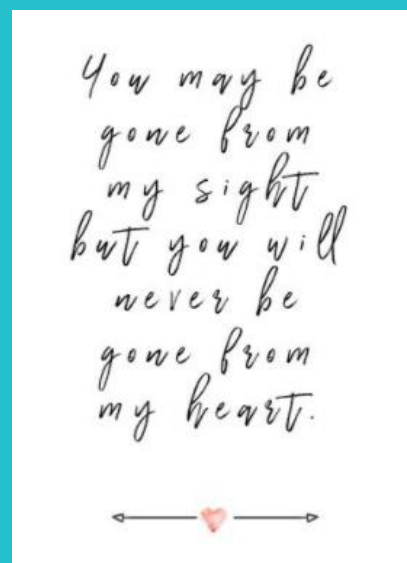 You may be
gone from
my sight
but you will
never be
gone from
my heart.